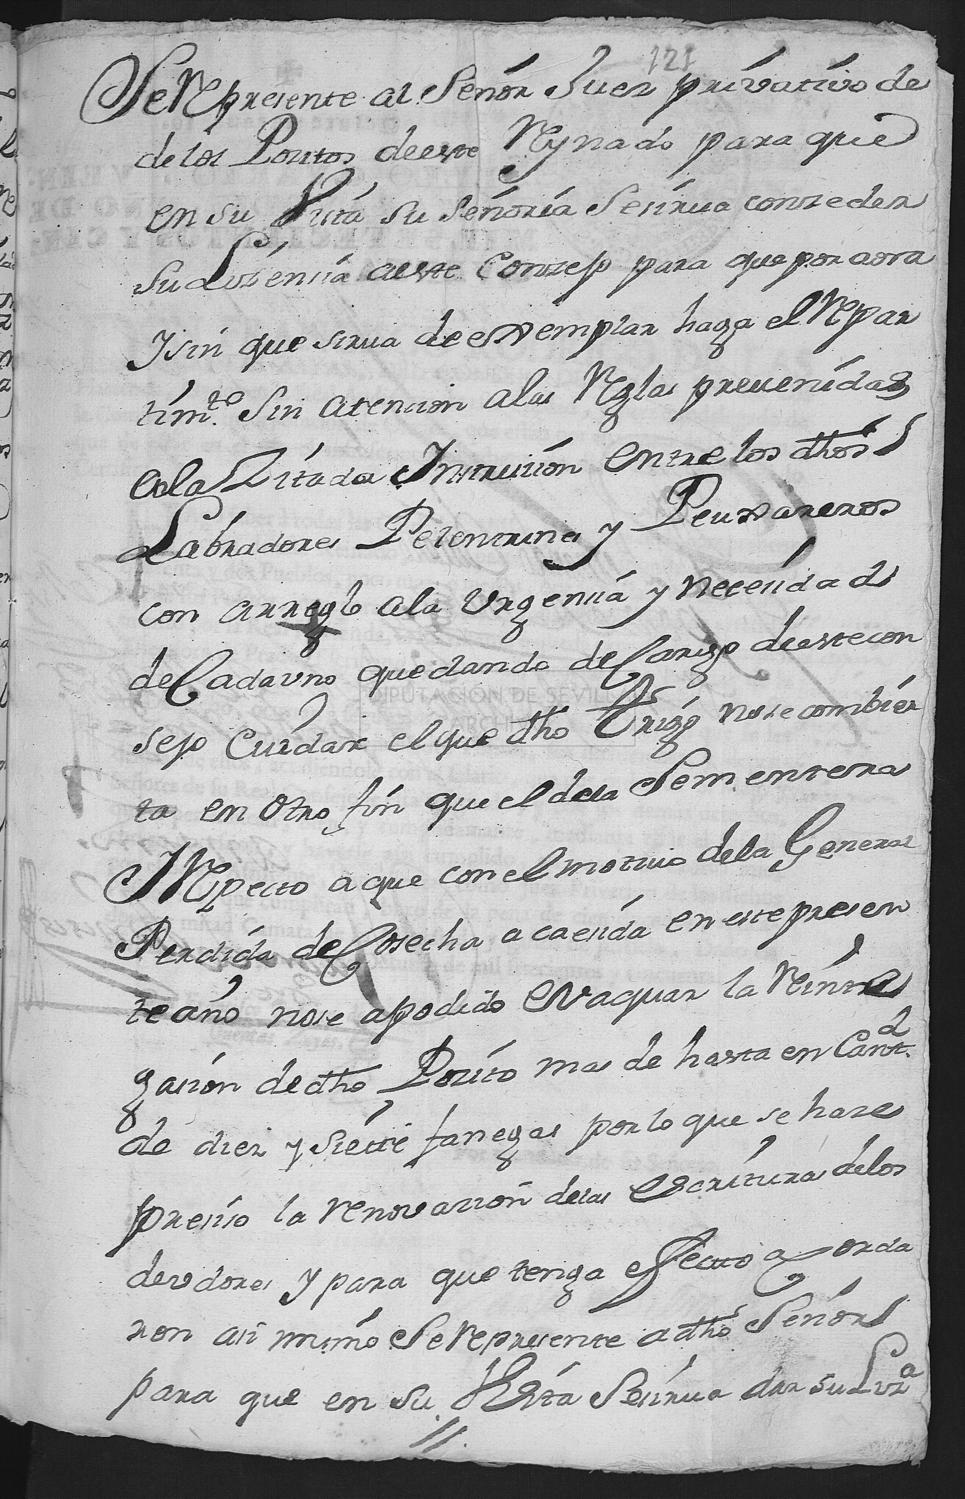 121
Se Represente al Señor Juez privativo de
de los Positos de este Reynado para que
en su Vista su señoria Se sirva conzeder
su Lizenzia a este Conzejo para que por aora
Y sin que sirua de exemplar haga el Repar
timto. Sin atencion a las Reglas prevenidas
en la Zitada Instruzion entre los dhos
Labradores Pelentrines y Peuxareros
con arreglo a la Urgenzia y Nezesidad
de Cada uno quedando de Cargo de este con
sejo Cuidar el que dho Trigo no se combier
ta en otro fin que el de la Sementera
Y Respecto a que con el motiuo de la General
Perdida de Cosecha acaesida en este presen
te año no se a podido evaquar la Reinte
grasion de dho Posito mas de hasta en Cantd.
de diez y siette fanegas por lo que se haze
presiso la renovazion de las escrituras de los
deudores y para que tenga efecto acorda
ron asi mismo Se represente a dho Señor
para que en su Vista Se sirua dar su Lizª
DIPUTACIÓN DE SEVILLA
ARCHIVO